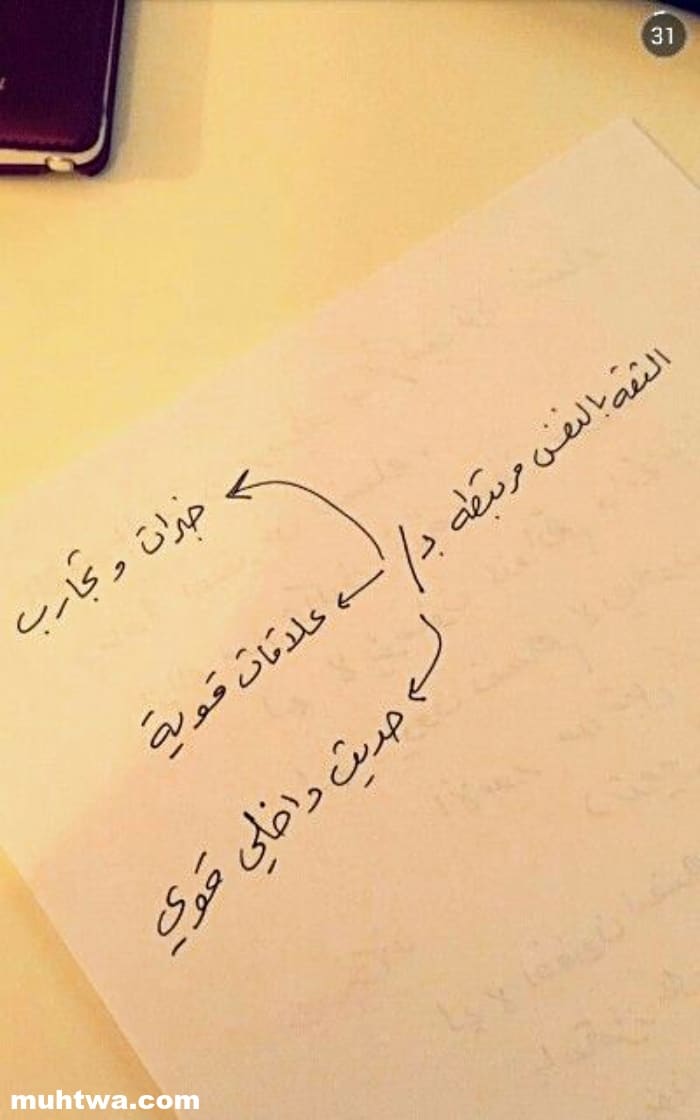 31
الثقة بالنفس مرتبطة بـ /
خبرات و تجارب
علاقات قوية
حديث داخلي قوي
muhtwa.com